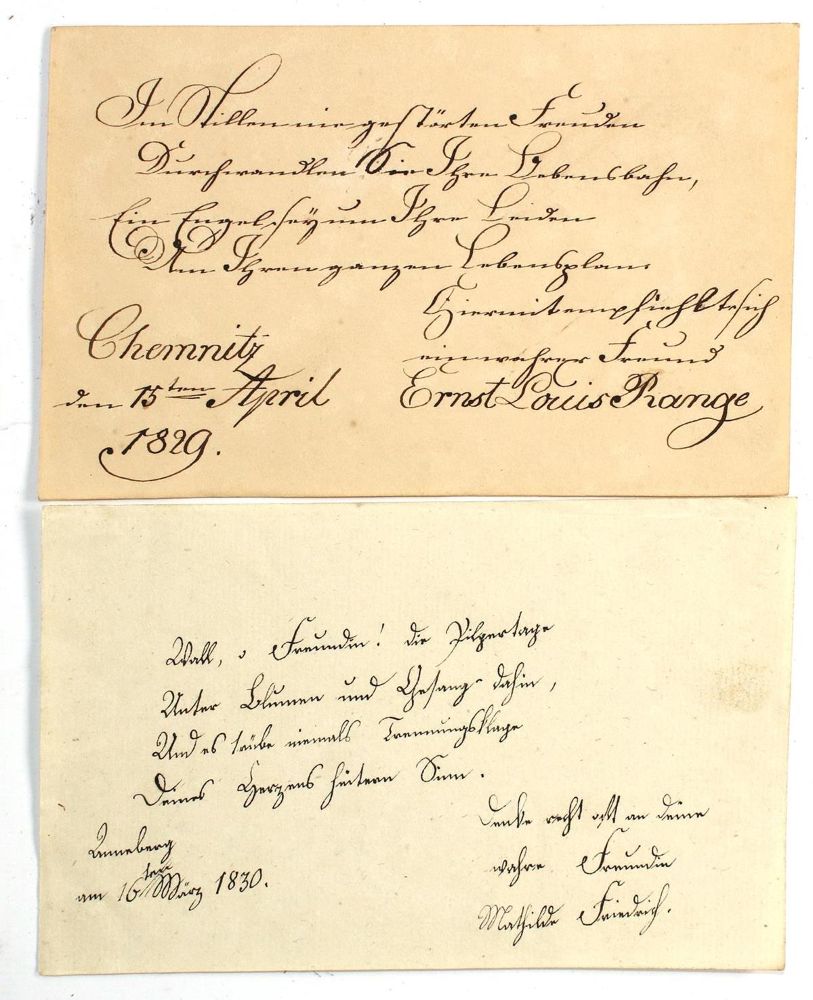 Im Stillen nie gestörten Freuden
Durchwandlen Sie Ihre Lebensbahn,
Ein Engel sey um Ihre Leiden
Um Ihren ganzen Lebensplan.
Hiermit empfiehlt sich
ein wahrer Freund
Ernst Louis Range
Chemnitz
den 15ten April
1829.
Wall, o Freundin! die Pilgertage
Unter Blumen und Gesang dahin,
Und es trübe niemals Trennungsklage
Deines Herzens heitern Sinn.
Denke recht oft an deine
wahre Freundin
Mathilde Friedrich.
Anneberg
am 16ten März 1830.